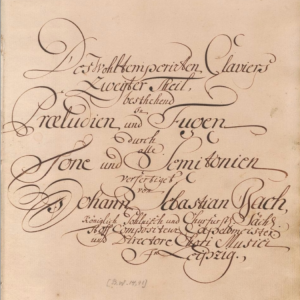 Des Wohltemperirten Claviers
Zweyter Theil,
bestehend
in
Præludien und Fugen
durch
alle
Tone und Semitonien
verfertiget
von
Johann Sebastian Bach,
Königlich Pohlnisch und Churfürstl. Sächs.
Hoff Compositeur Capellmeister
und Directore Chori Musici
In Leipzig.